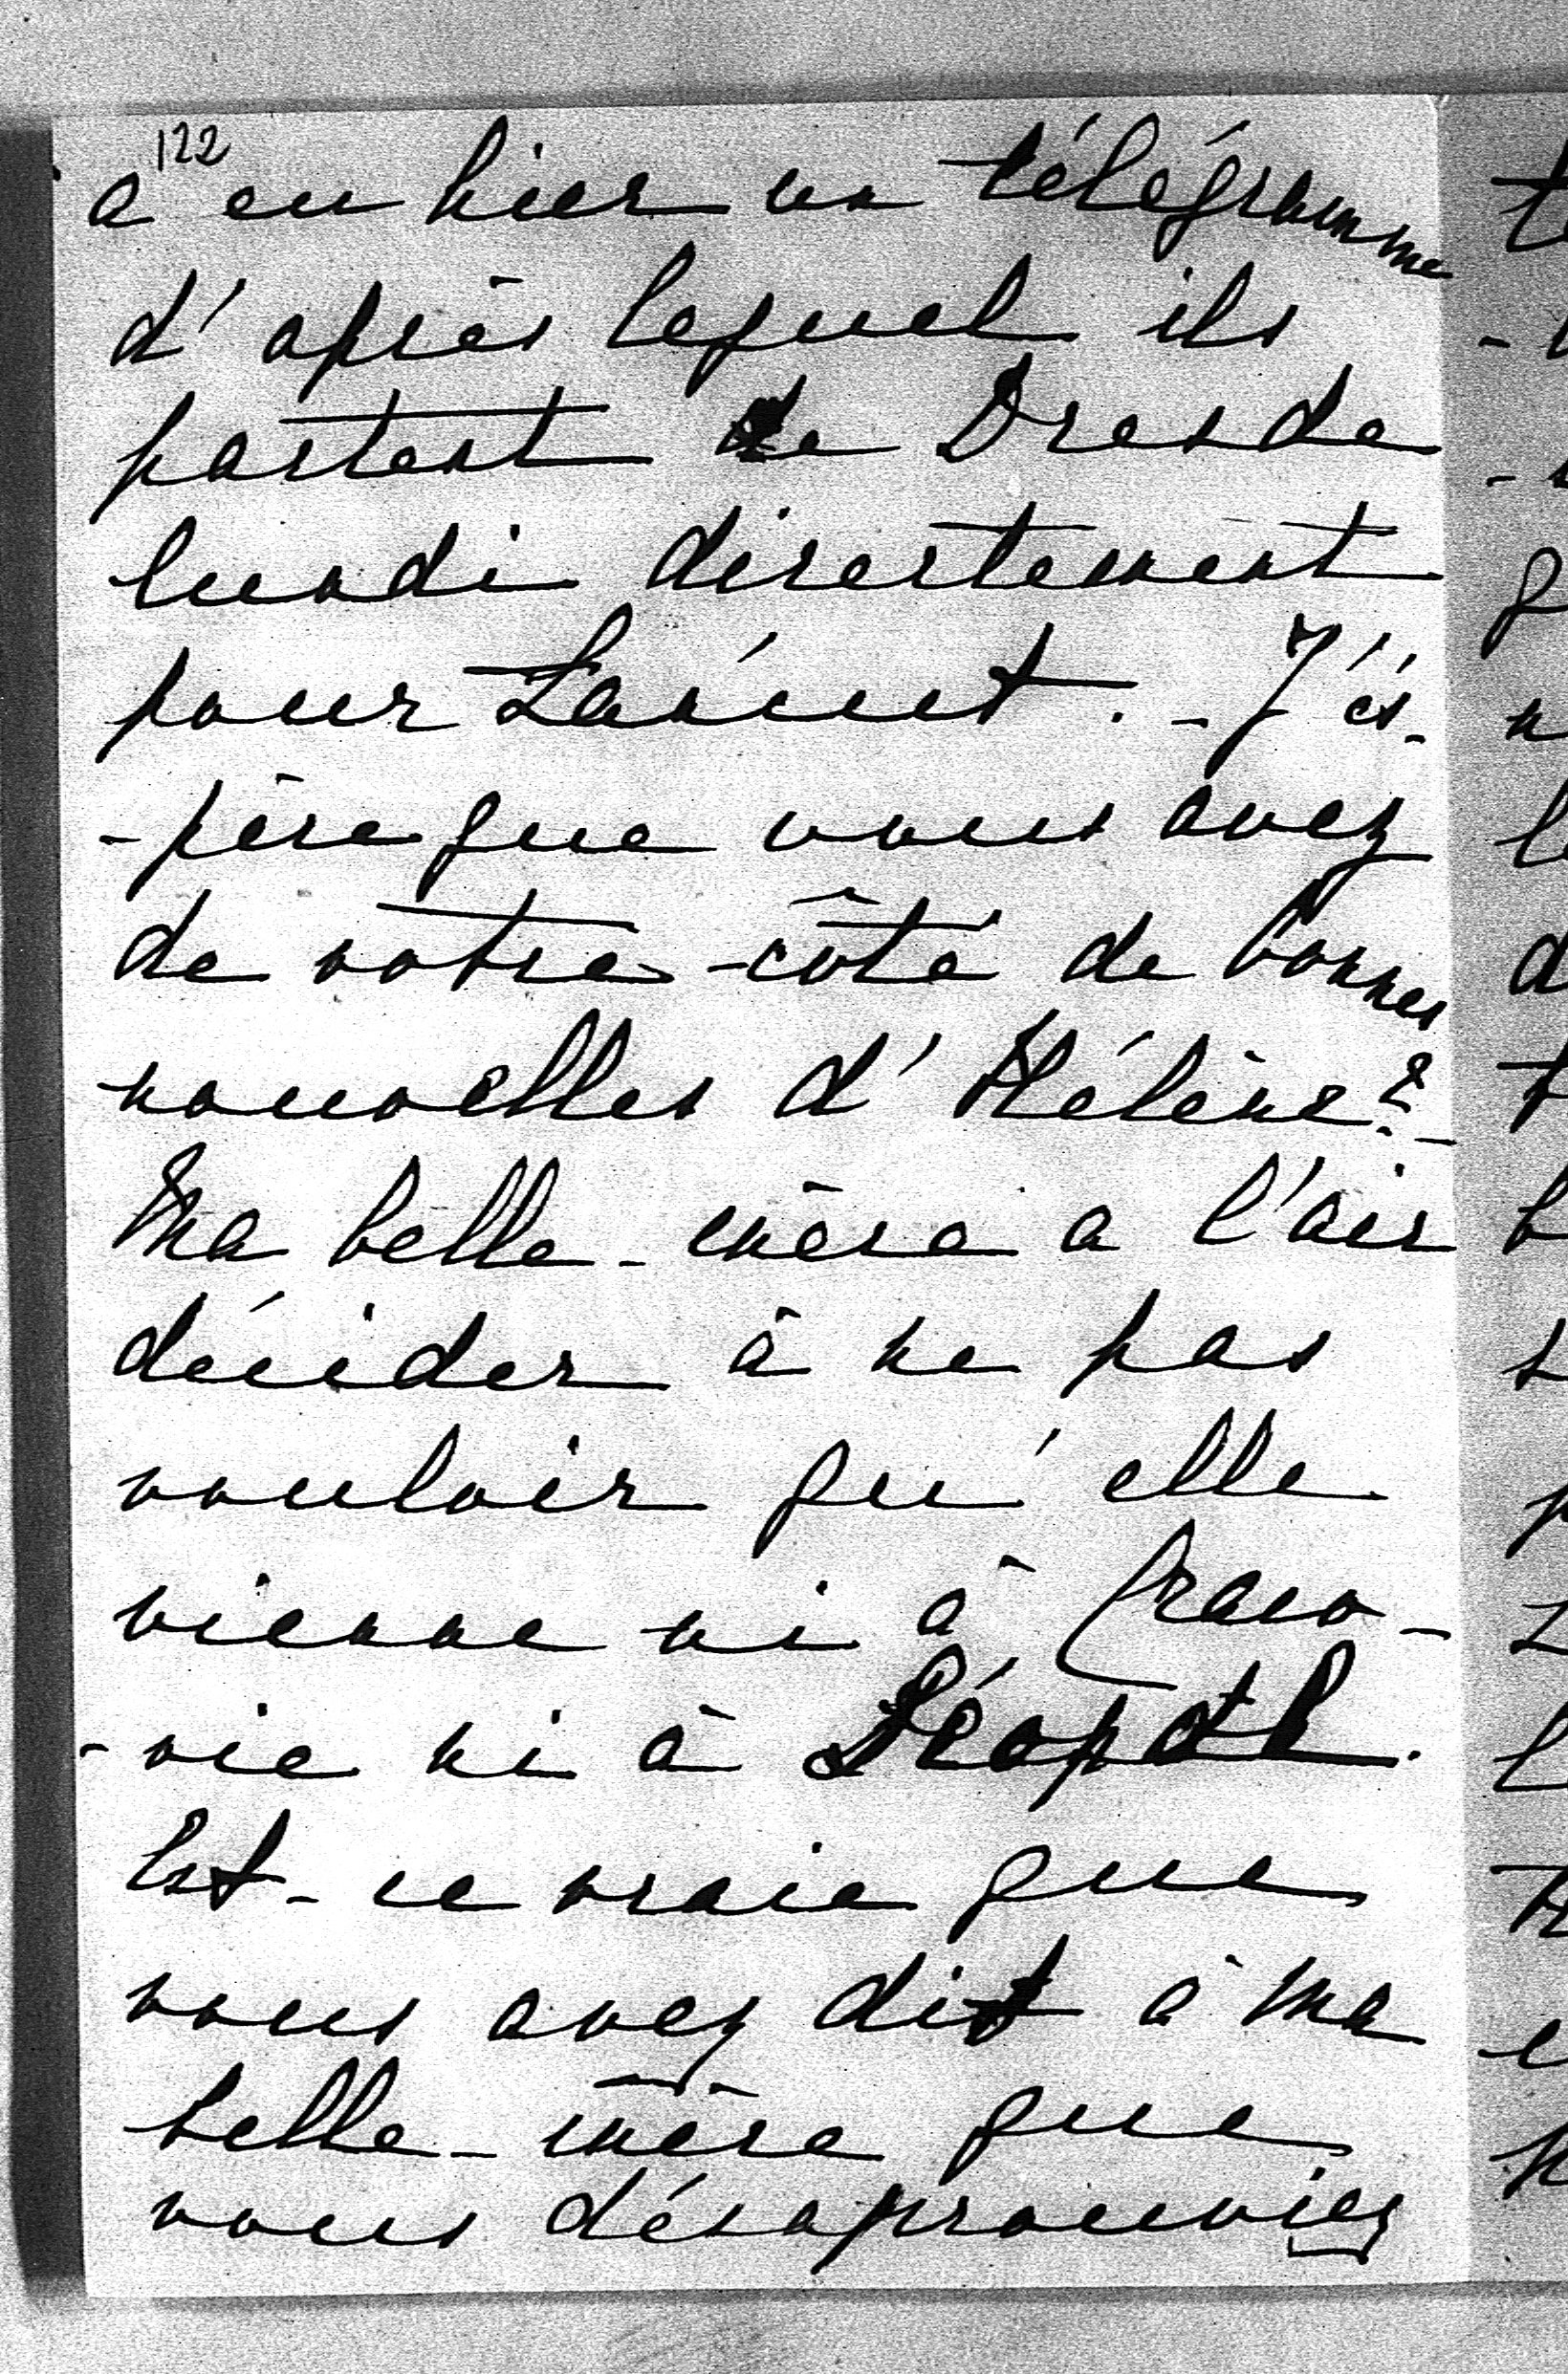 122
a eu hier un télégramme
d'après lequel ils
partent de Dresde
lundi directement
pour Łańcut. - J'és-
-père que vous avez
de votre côté de bonnes
nouvelles d'Hélène? -
Ma belle-mère a l'air
décider à ne pas
vouloir qu'elle
vienne ni à Craco-
-vie ni à Léopol.
Est-ce vraie que
vous avez dit à ma
belle-mère que
vous désaprouviez